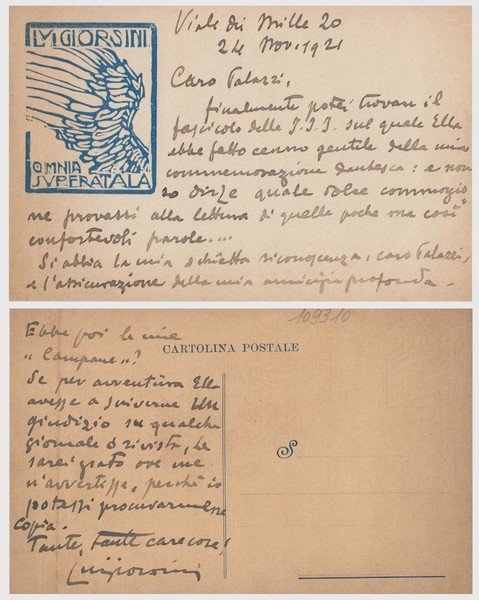 LVIGI ORSINI
OMNIA
SVPERAT ALA
Viale dei Mille 20
24 Nov. 1921
Caro Palazzi,
finalmente potei trovare il
fascicolo delle I.I.I. sul quale Ella
ebbe fatto cenno gentile della mia
commemorazione dantesca: e non
so dirLe quale dolce commozio
ne provassi alla lettura di quelle poche ma così
confortevoli parole....
Si abbia la mia schietta riconoscenza, caro Palazzi,
e l'assicurazione della mia amicizia profonda.
109310
Ebbe poi le mie
"Campane"?
CARTOLINA POSTALE
Se per avventura Ella
avesse a scriverne un
giudizio su qualche
giornale o rivista, Le
sarei grato ove me
n'avvertisse, perchè io
potessi procurarmene
copia.
Tante, tante care cose!
Luigi Orsini